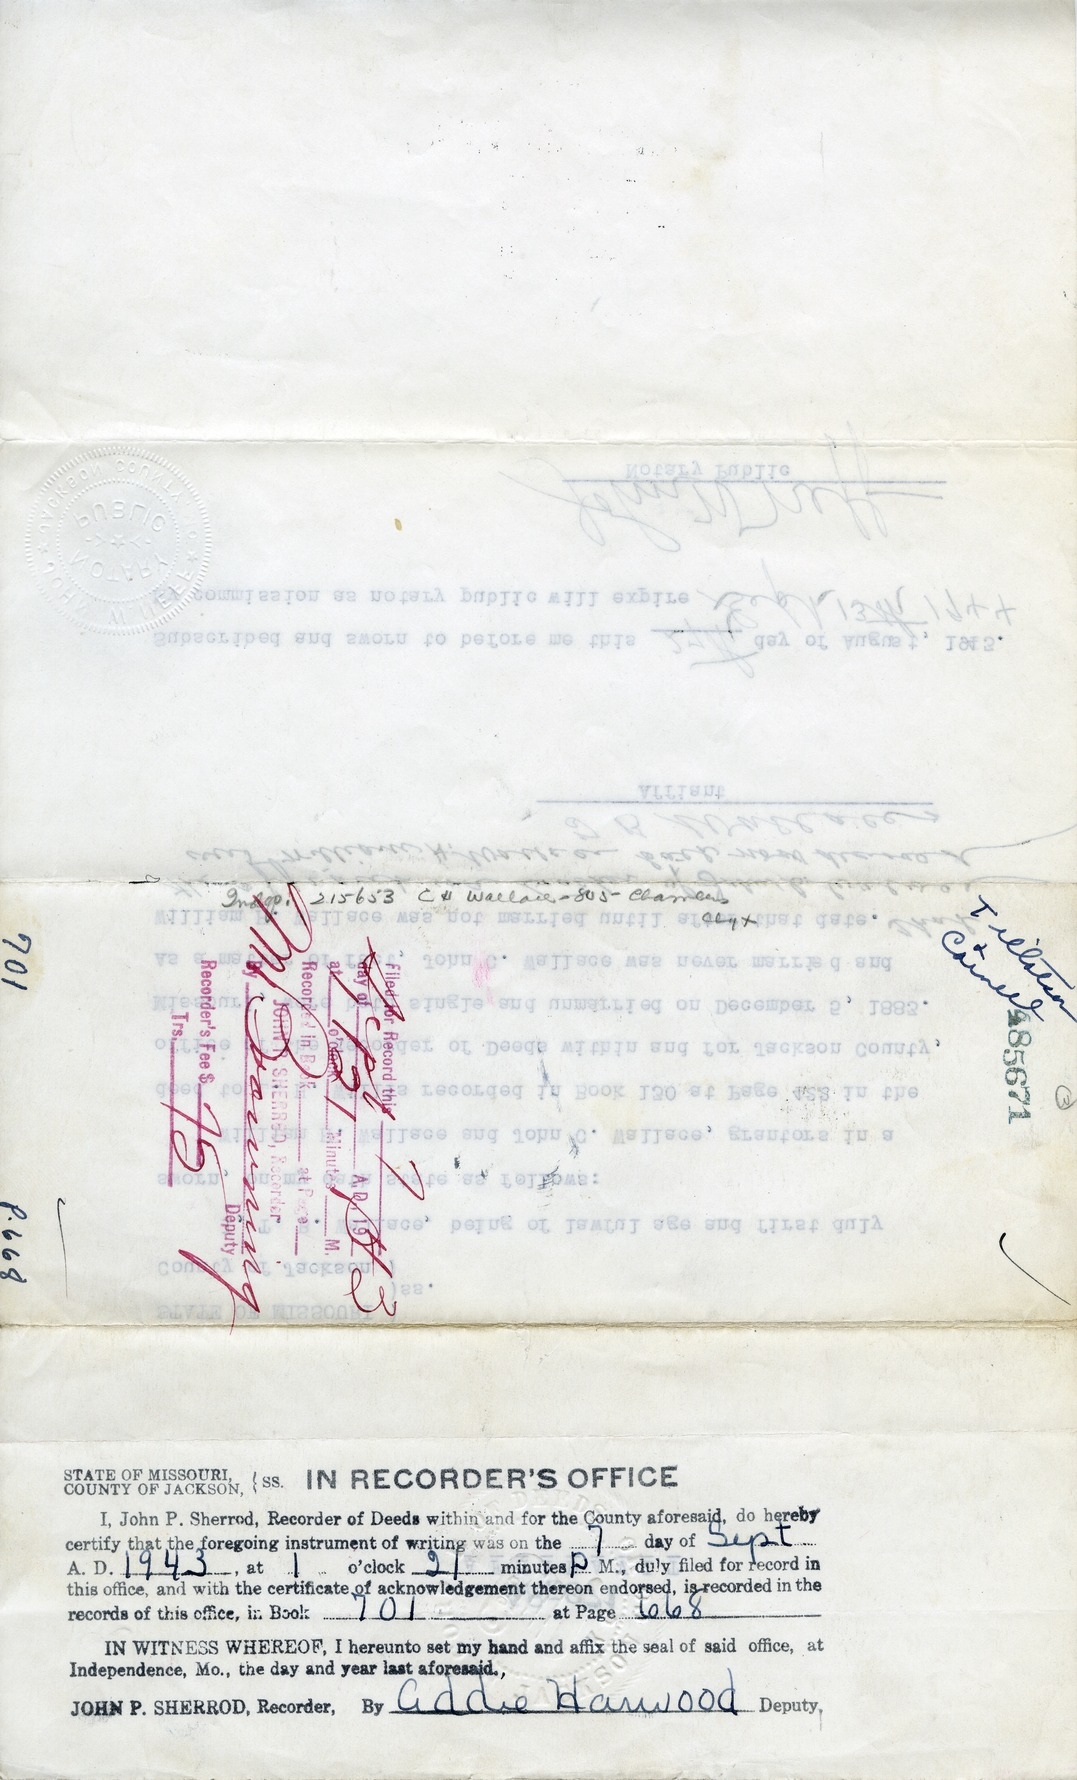 Indep. 215653 C H Wallace - 805 - Chambers
Tillotson
&
485671
3
701
P. 668
Filed for Record this
day of Sept 7 A.D. 1943
at 1 o'clock 21 Minutes P M.
Recorded in Book at Page
JOHN P. SHERROD, Recorder
By Deputy
Recorder's Fee $ 75
Trs.
STATE OF MISSOURI
)ss.
County of Jackson)
Wallace, being of lawful age and first duly
sworn, on my oath state as follows:
William Wallace and John C. Wallace, grantors in a
deed to recorded in Book 130 at Page in the
office of the Recorder of Deeds within and for Jackson County,
Missouri were both single and unmarried on December 5, 1883.
As a matter of fact, John C. Wallace was never married and
William H. Wallace was not married until after that date.
Affiant
Subscribed and sworn to before me this 27th day of August, 1943.
My commission as notary public will expire Sept. 13th 1944
John W Neff
Notary Public
JOHN W. NEFF
NOTARY
PUBLIC
JACKSON COUNTY
STATE OF MISSOURI,
COUNTY OF JACKSON, } ss. IN RECORDER'S OFFICE
I, John P. Sherrod, Recorder of Deeds within and for the County aforesaid, do hereby
certify that the foregoing instrument of writing was on the 7 day of Sept
A. D. 1943, at 1 o'clock 21 minutes P M., duly filed for record in
this office, and with the certificate of acknowledgement thereon endorsed, is recorded in the
records of this office, in Book 701 at Page 668
IN WITNESS WHEREOF, I hereunto set my hand and affix the seal of said office, at
Independence, Mo., the day and year last aforesaid.,
JOHN P. SHERROD, Recorder, By Addie Harwood Deputy.